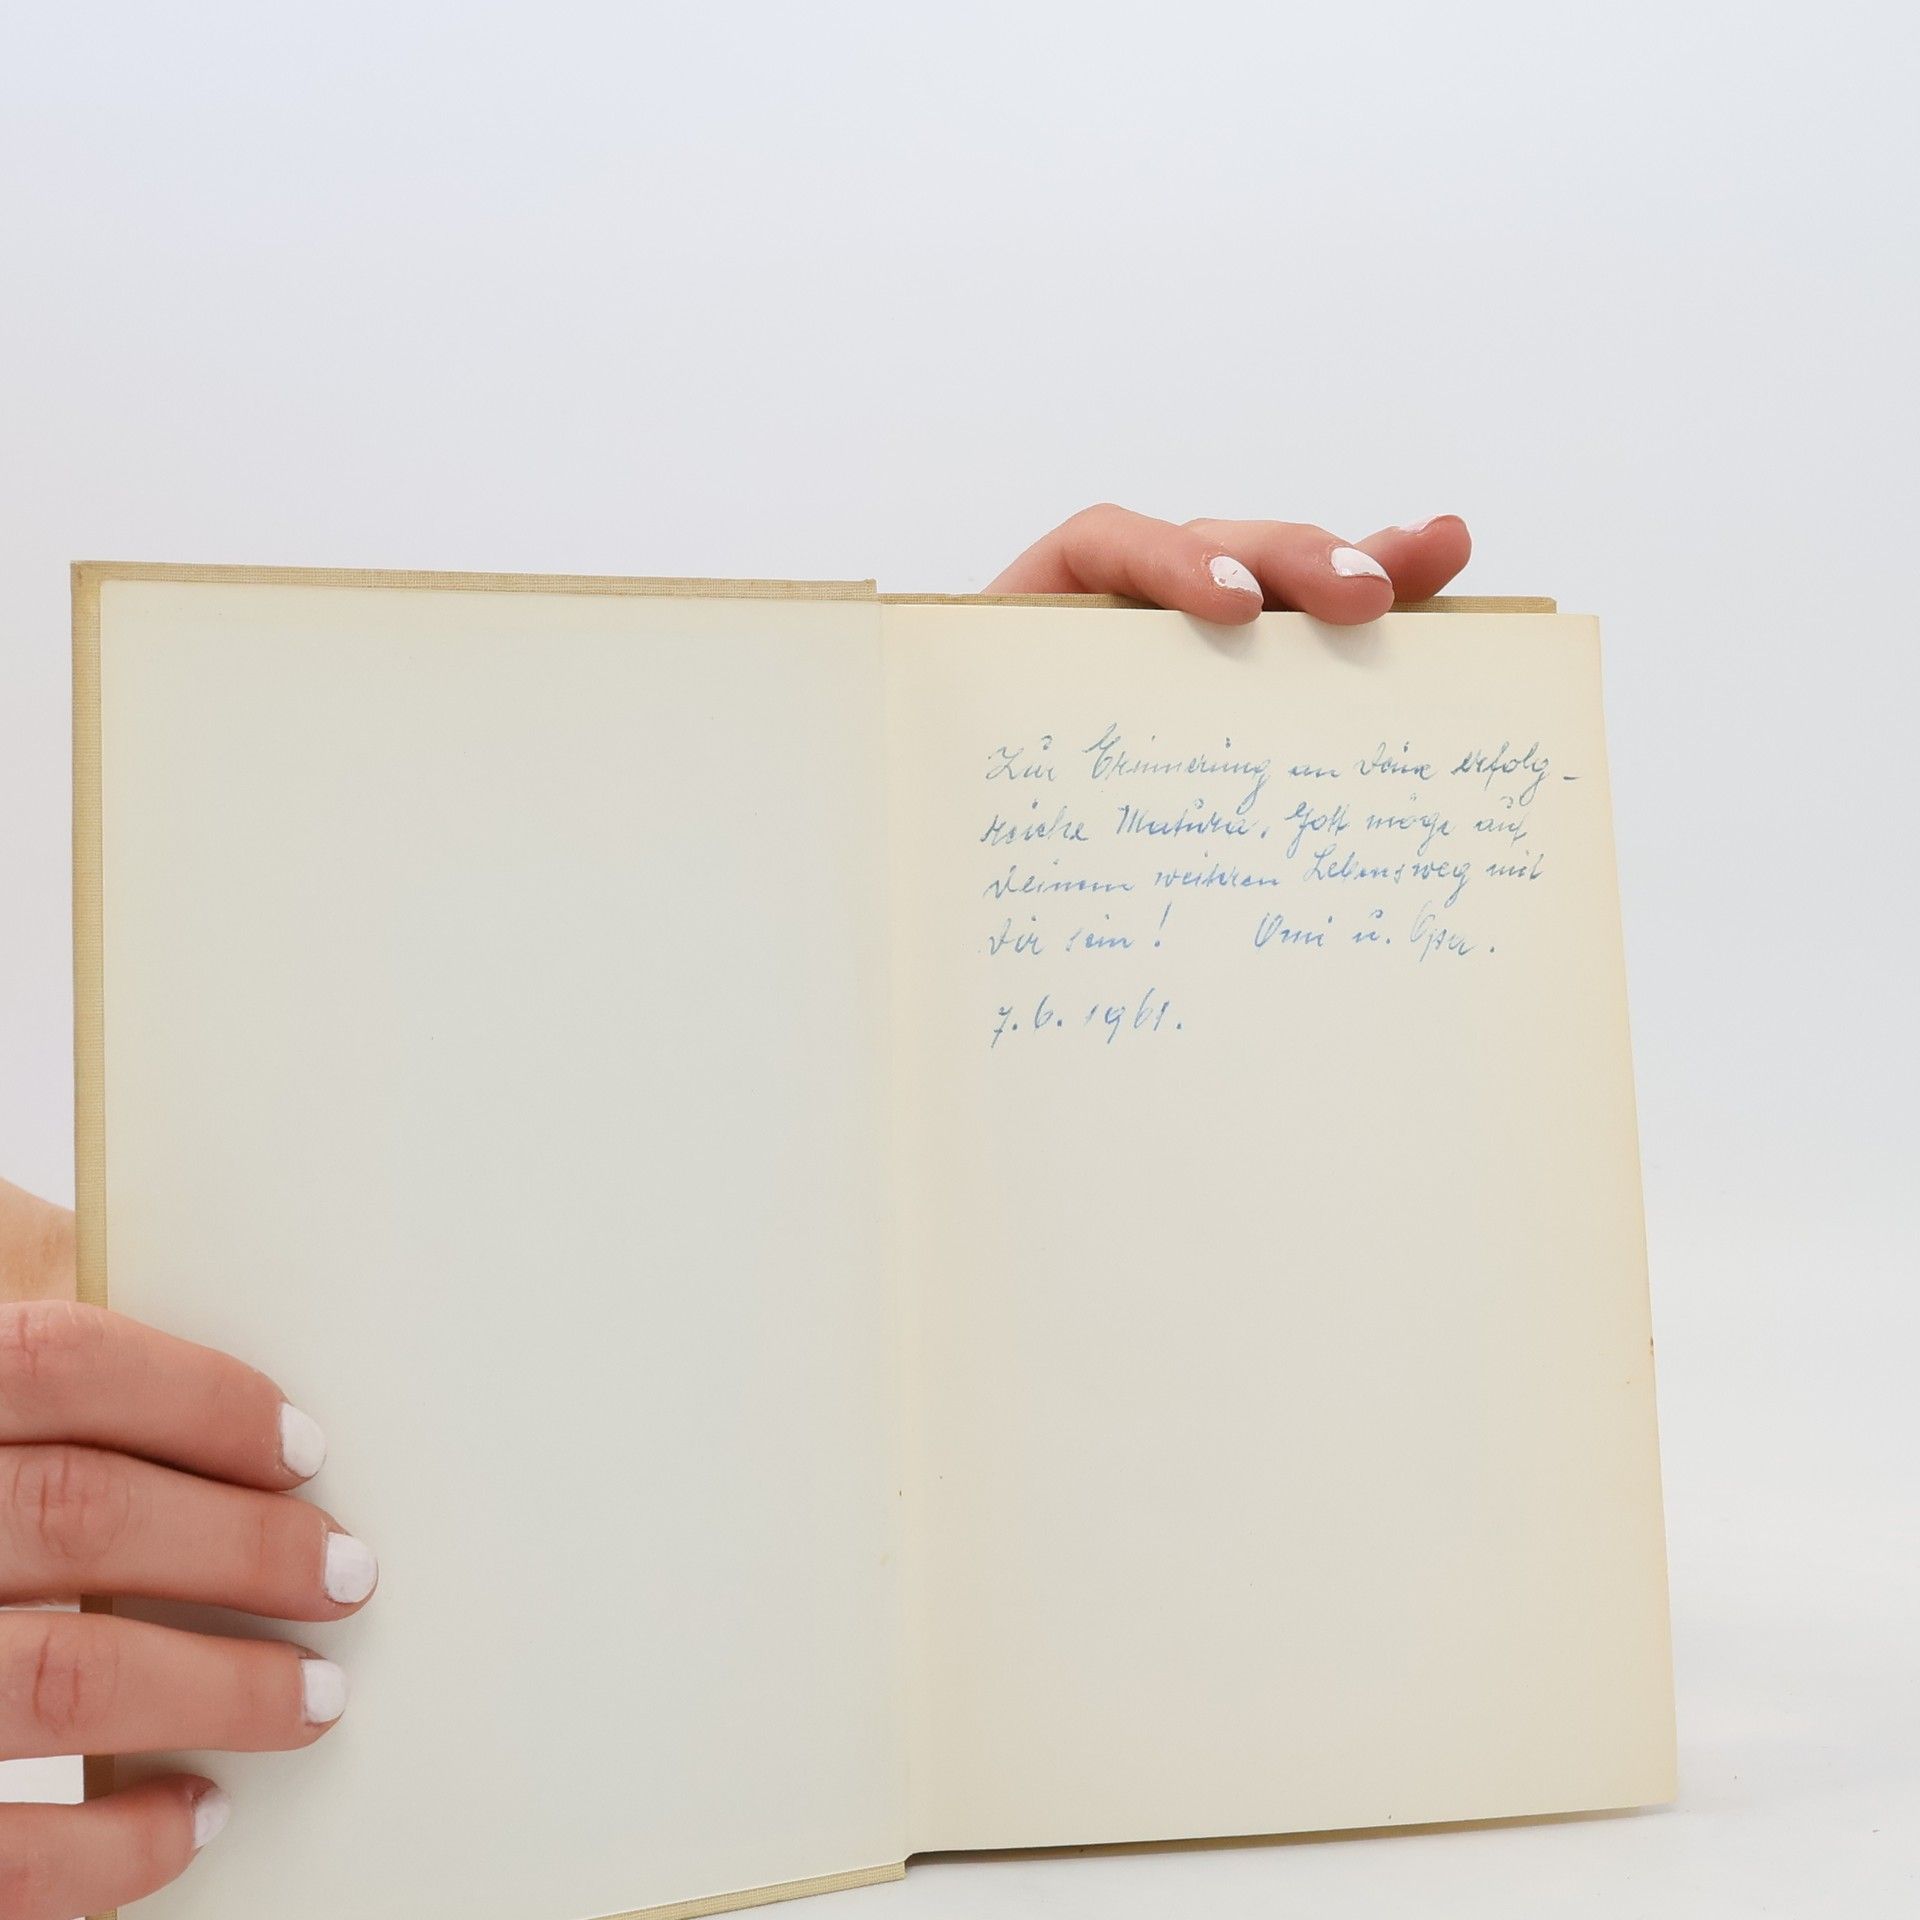 Zur Erinnerung an Deine erfolg-
reiche Matura. Gott möge auf
Deinem weiteren Lebensweg mit
Dir sein! Omi u. Opa.
7.6.1961.